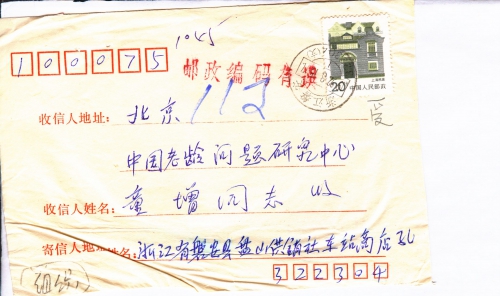 1045
100075
邮政编码有误
上海民居
20 中国人民邮政
112
收信人地址: 北京
中国老龄问题研究中心
收信人姓名: 童增同志 收
寄信人地址姓名: 浙江省磐安县盘山供销社车站商店孔
322304